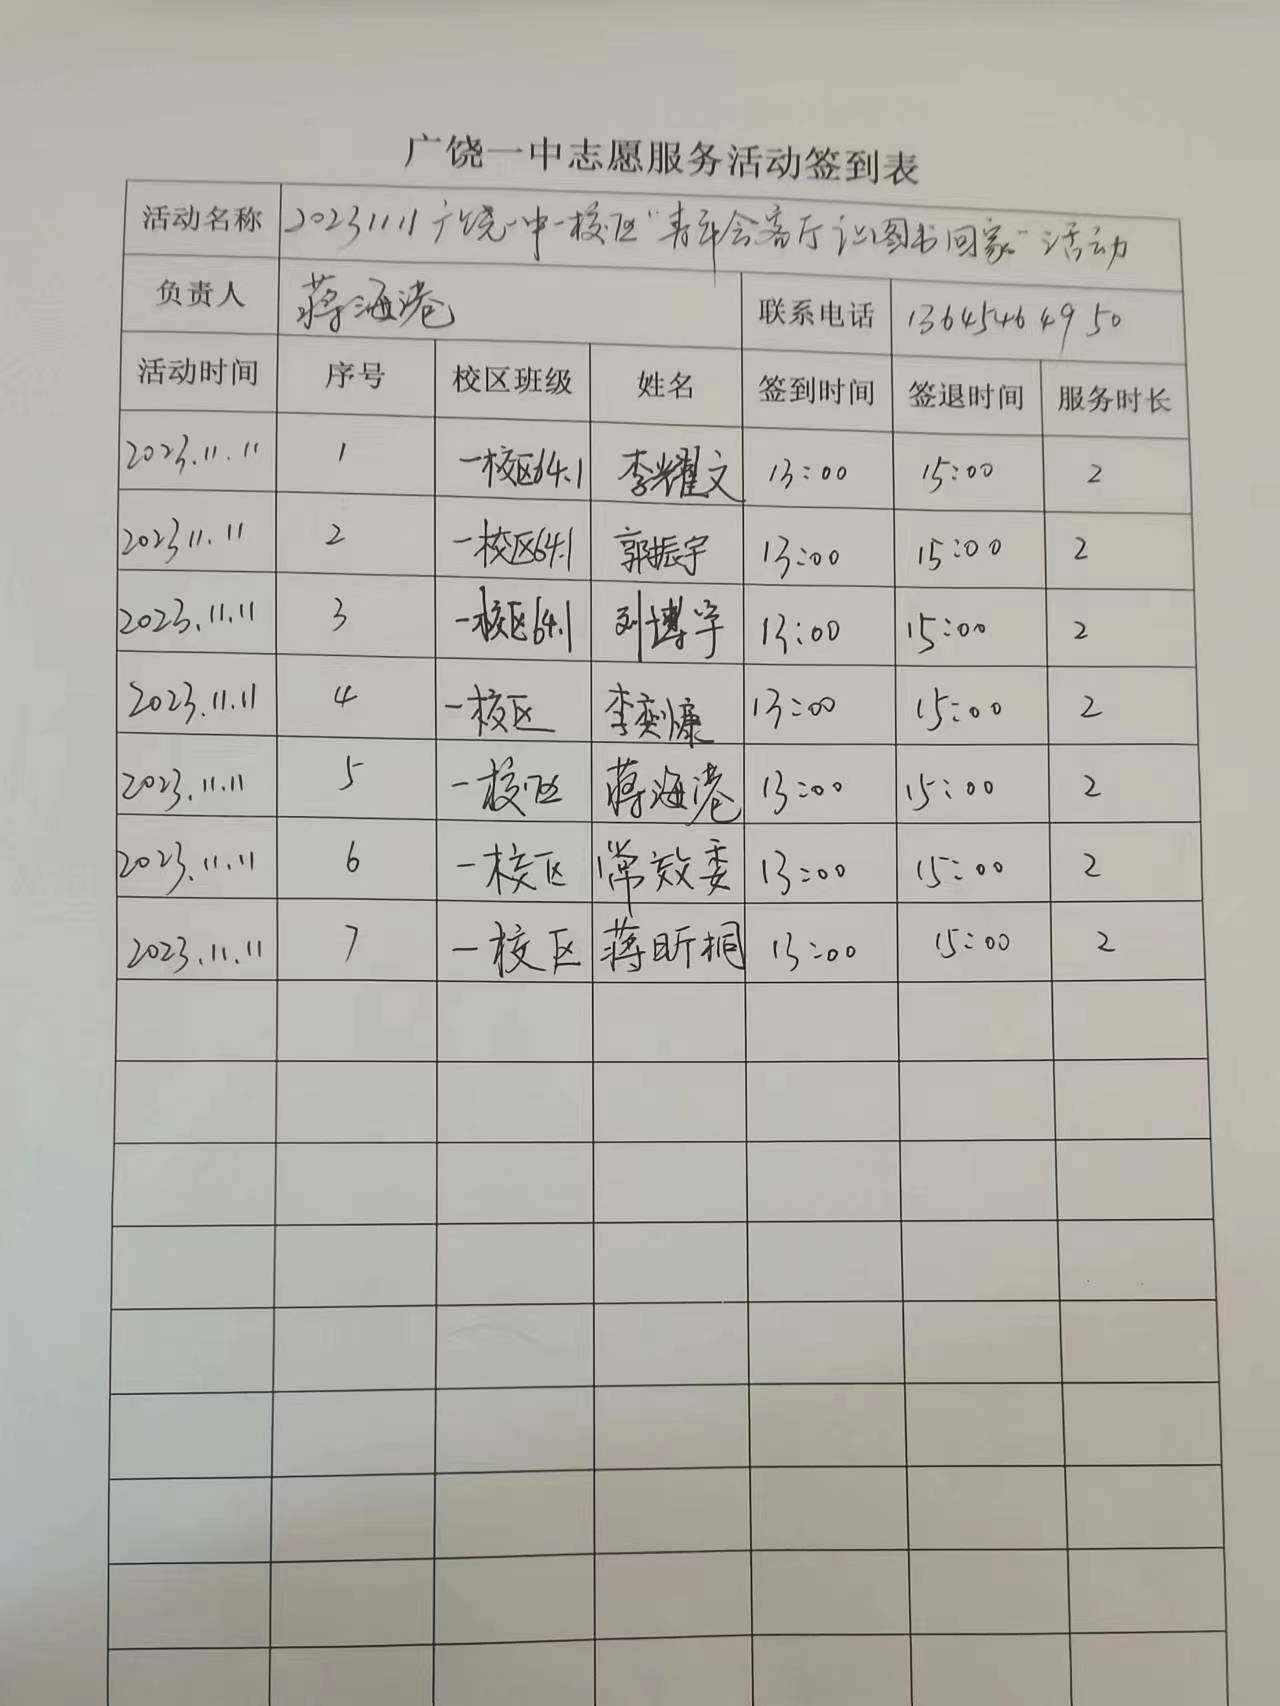 广饶一中志愿服务活动签到表
活动名称 20231111广饶一中一校区“青年会客厅 让图书回家”活动
负责人 蒋海港 联系电话 13645464950
活动时间 序号 校区班级 姓名 签到时间 签退时间 服务时长
2023.11.11 1 一校区64.1 李耀文 13:00 15:00 2
202311.11 2 一校区64.1 郭振宇 13:00 15:00 2
2023.11.11 3 一校区64.1 刘博宇 13:00 15:00 2
2023.11.11 4 一校区 李奕慷 13:00 15:00 2
2023.11.11 5 一校区 蒋海港 13:00 15:00 2
2023.11.11 6 一校区 常效委 13:00 15:00 2
2023.11.11 7 一校区 蒋昕桐 13:00 15:00 2